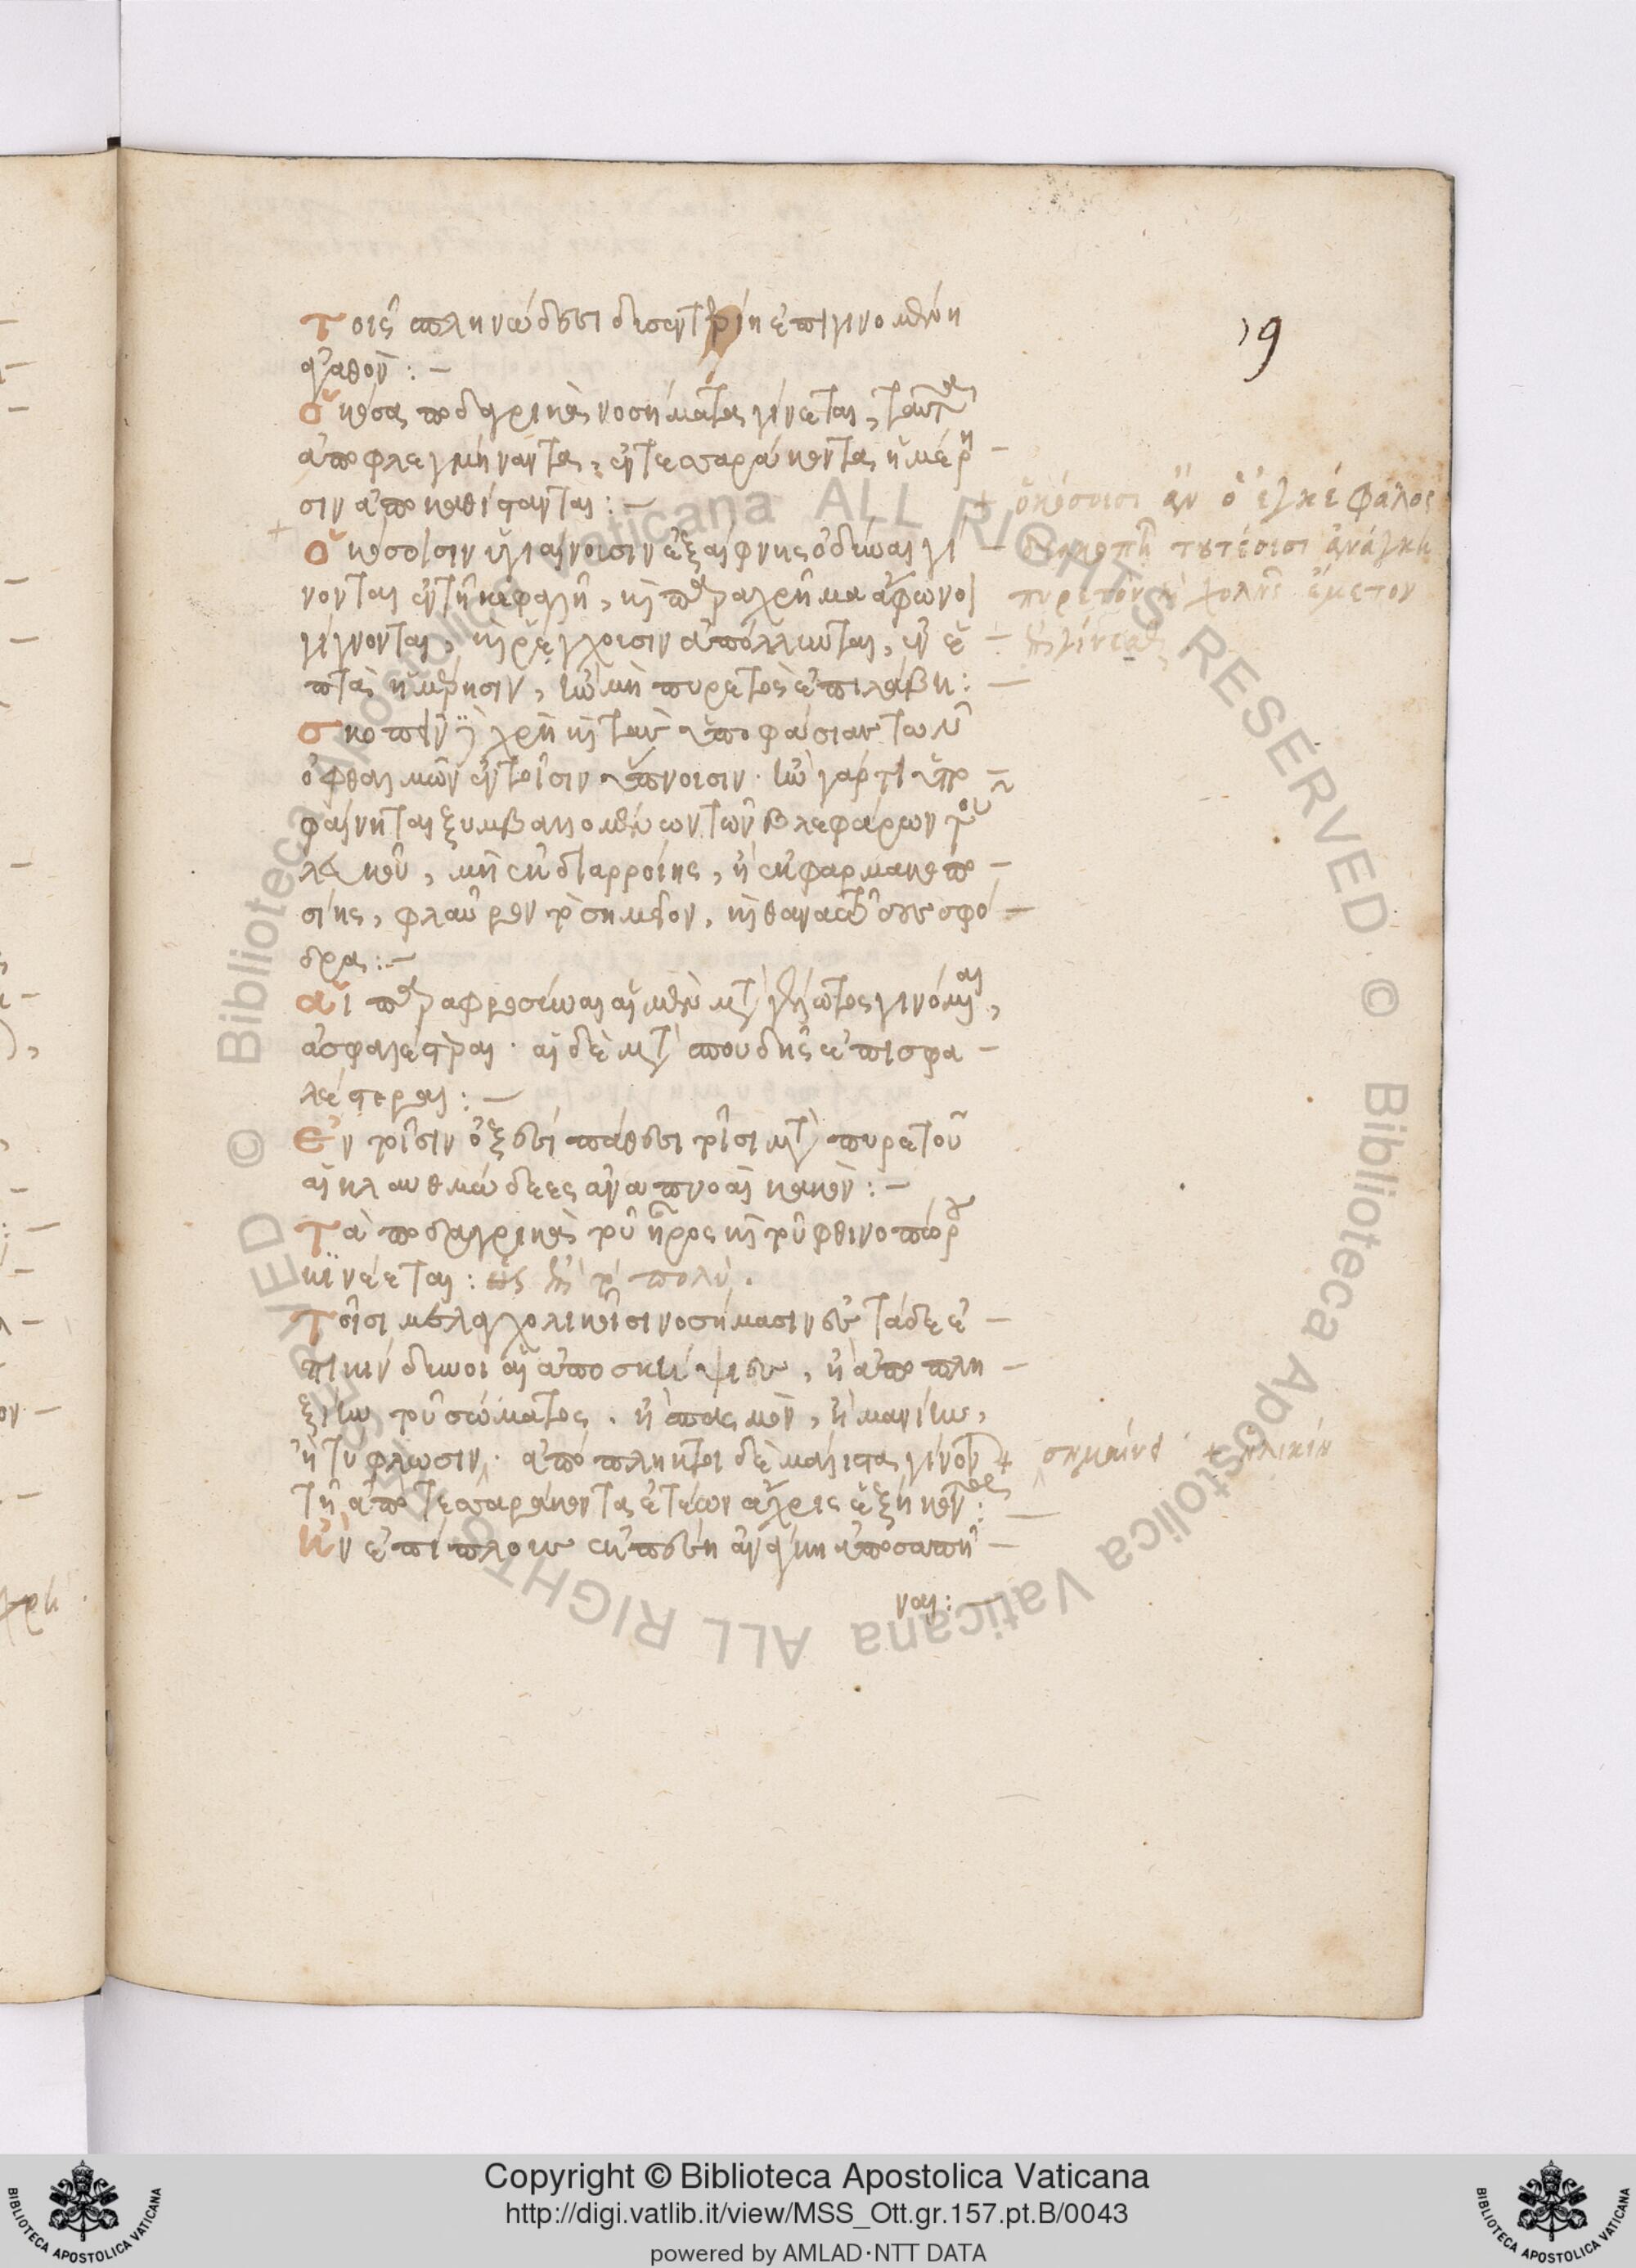 19
τοῖς σπληνώδεσι δυσεντερίη ἐπιγινομένη
ἀγαθόν : –
ὁκόσα ποδαγρικὰ νοσήματα γίνεται, ταῦτα
ἀποφλεγμήναντα, ἐν τεσσαράκοντα ἡμέρῃ –
σιν ἀποκαθίσταντται : –
+ ὁκόσοισιν ὑγιαίνουσιν ἐξαίφνης ὀδύναι γί –
νονται ἐν τῇ κεφαλῇ, καὶ παραχρῆμα ἄφωνοι
γίγνονται, καὶ ῥέγχουσιν ἀπόλλυνται, ἐν ἑ –
πτὰ ἡμέρῃσιν, ἢν μὴ πυρετὸς ἐπιλάβῃ : –
σκοπεῖν δὲ χρὴ καὶ τὰν ὑποφάσιαν τῶν
ὀφθαλμῶν ἐν τοῖσιν ὕπνοισιν · ἢν γάρ τι ὑπο –
φαίνηται ξυμβαλλομένων τῶν βλεφάρων τοῦ
λευκοῦ, μὴ ἐκ διαρροίης, ἢ ἐκ φαρμακοπο –
σίης, φλαῦρον τὸ σημεῖον, καὶ θανατῶδες σφό –
δρα : –
αἱ παραφροσύναι αἱ μὲν μετὰ γέλωτος γινόμεναι,
ἀσφαλέστεραι · αἱ δὲ μετὰ σπουδῆς ἐπισφα –
λέστεραι : –
ἐν τοῖσιν ὀξέσι πάθεσι τοῖσι μετὰ πυρετοῦ
αἱ κλαυθμώδεες ἀναπνοαὶ κακόν : –
τὰ ποδαγρικὰ τοῦ ἦρος καὶ τοῦ φθινοπώρου
κινέεται : ὡς ἐπὶ τὸ πολύ .
τοῖσι μελαγχολικοῖσι νοσήμασιν ἐς τάδε ἐ –
πικίνδυνοι αἱ ἀποσκήψιες, ἢ ἀποπλη –
ξίην τοῦ σώματος . ἢ σπασμόν, ἢ μανίην,
ἢ τύφλωσιν · ἀπόπληκτοι δὲ μάλιστα γίνονται +
τῇ ἀπὸ τεσσαράκοντα ἐτέων ἄχρις ἑξήκοντα : –
ἢν ἐπίπλοον ἐκπέσῃ ἀνάγκη ἀποσαπῆ –
ναι : –
+ ὁκόσοισι ἂν ὁ ἐγκέφαλος
διακοπῇ τουτέοισι ἀνάγκη
πυρετὸν καὶ χολῆς ἔμετον
ἐπιγίνεσθαι
σημαίνει + ἡλικίῃ
Copyright © Biblioteca Apostolica Vaticana
http://digi.vatlib.it/view/MSS_Ott.gr.157.pt.B/0043
powered by AMLAD·NTT DATA